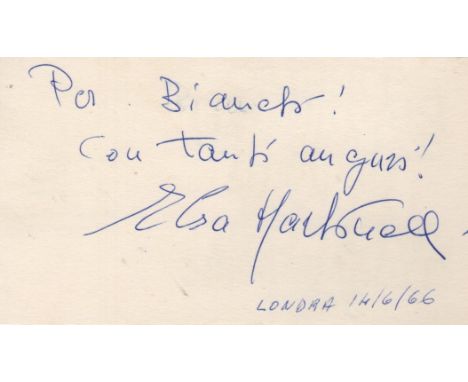 Per Bianchi!
Con tanti auguri!
Elsa Martinelli
LONDRA 14/6/66